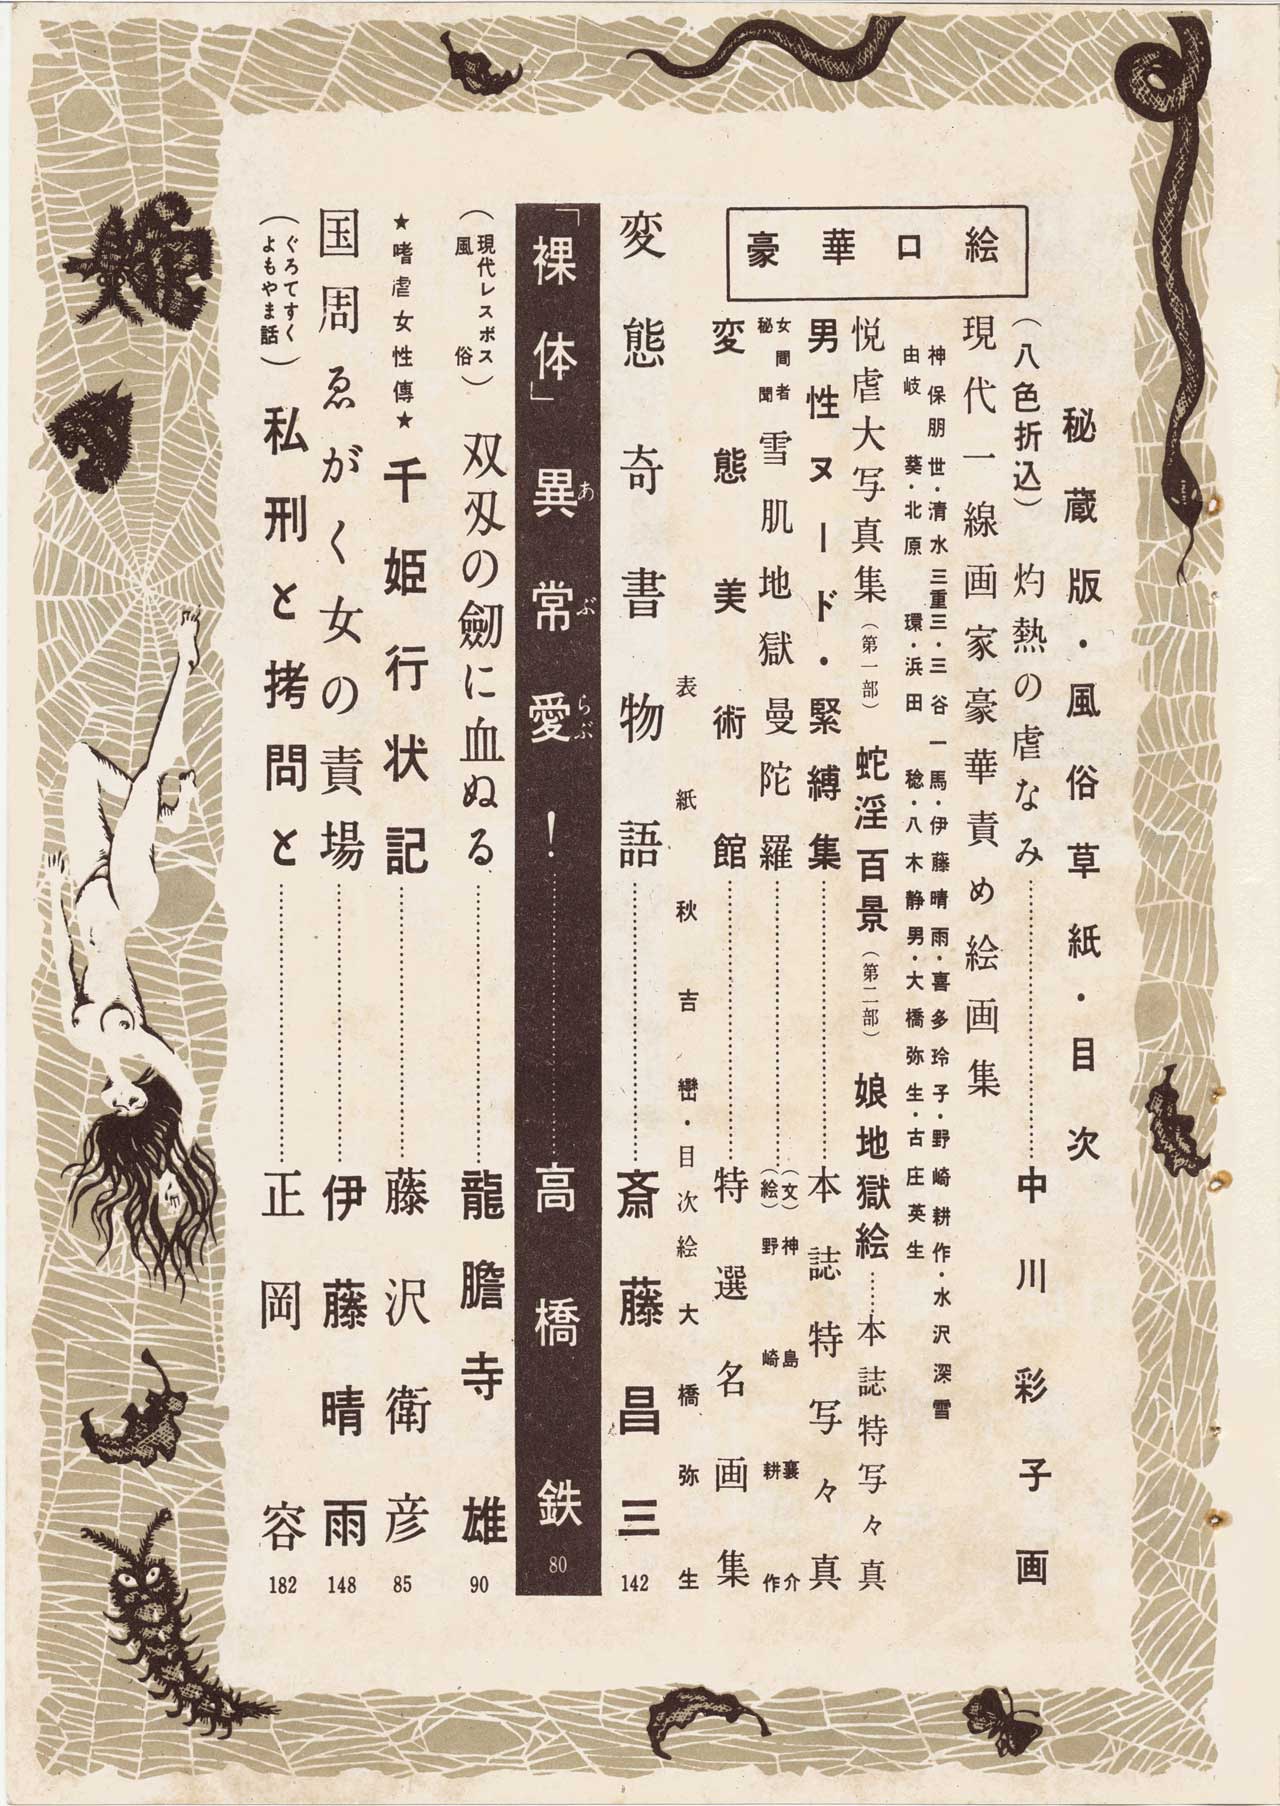 秘蔵版・風俗草紙・目次
豪華口絵
(八色折込) 灼熱の虐なみ 中川彩子画
現代一線画家豪華責め絵画集
神保朋世・清水三重三・三谷一馬・伊藤晴雨・喜多玲子・野崎耕作・水沢深雪
由岐葵・北原環・浜田稔・八木静男・大橋弥生・古庄英生
悦虐大写真集(第一部) 蛇淫百景(第二部) 娘地獄絵 本誌特写々真
男性ヌード・緊縛集 本誌特写々真
女間者秘聞 雪肌地獄曼陀羅 (文)神島襄介 (絵)野崎耕作
変態美術館 特選名画集
表紙 秋吉巒・目次絵 大橋弥生
変態奇書物語 斎藤昌三 142
「裸体」異常愛! 高橋鉄 80
あぶらぶ
(現代レスボス風俗) 双刄の劒に血ぬる 龍膽寺雄 90
★嗜虐女性傳★ 千姫行状記 藤沢衛彦 85
国周ゑがく女の責場 伊藤晴雨 148
(ぐろてすくよもやま話) 私刑と拷問と 正岡容 182